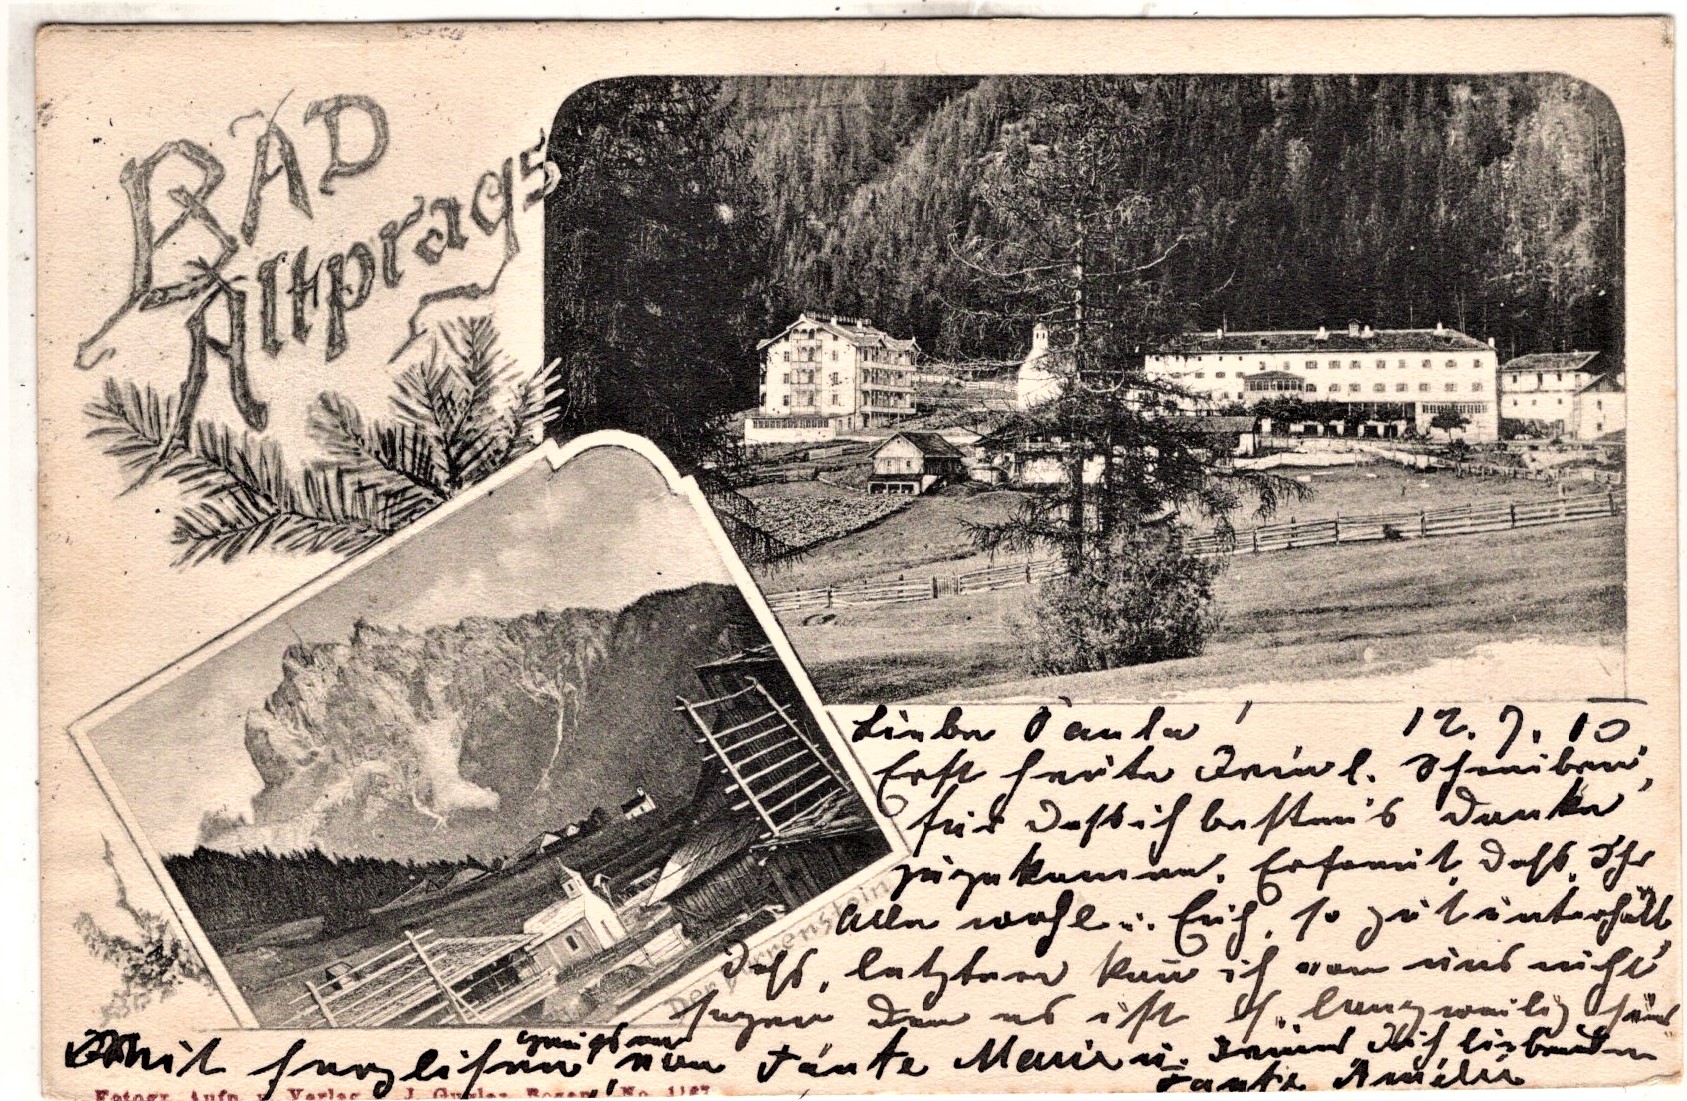 BAD
Altprags
Liebe Paula! 12. 7. 10
Erst heute Dein l. Schreiben,
für daß ich bestens Danke
zugekommen. Erfreut, daß Ihr
Alle wohl u. Euch so gut unterhält
daß, letzteres kan ich von uns nicht
sagen den es ist langweilig hier
Mit herzlichen von Tante Marie u. Deiner Dich liebenden
Tante Amelie
Der Herrenstein
Fotogr. Aufn. v. Verlag J. Gugler Bozen, No. 1187